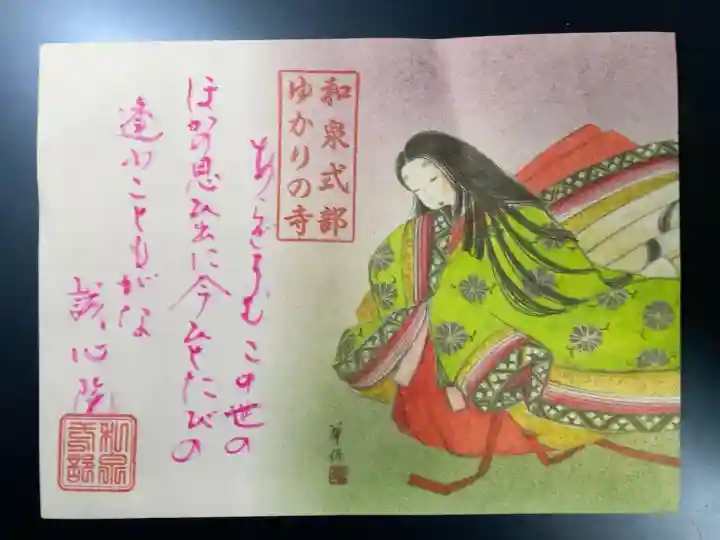 和泉式部
ゆかりの寺
あらざらむ この世の
ほかの思ひ出に今ひとたびの
逢ふこともがな
誠心院
和泉
式部